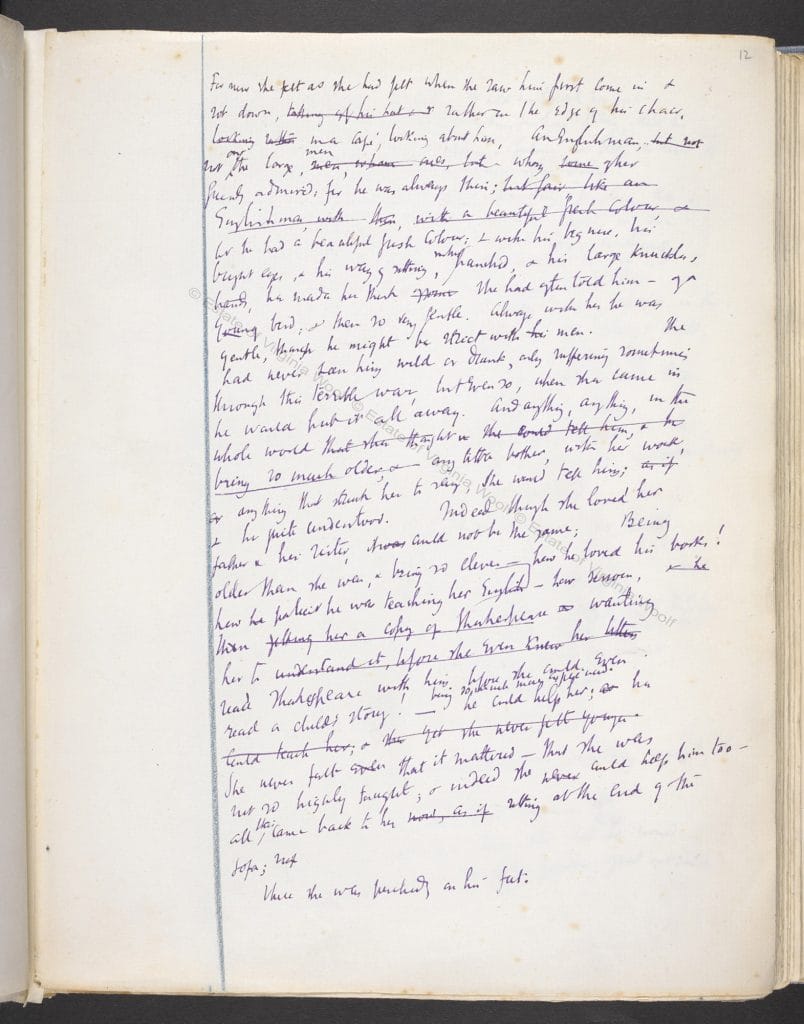 12
For now she felt as she had felt when she saw him first come in &
sit down, taking off his hat & rather on the edge of his chair,
looking rather in a café, looking about him, an Englishman, but not
not one of the large, men, men, whom ones, but whom some other
friends admired; for he was always thin; but fair like an
Englishman, with then, with a beautiful fresh colour, &
for he had a beautiful fresh colour; & with his big nose, his
bright eyes, & his way of sitting, rather, hunched, & his large knuckles,
hands, he made her think she had often told him – of a
young bird; & then so very gentle. Always with her he was
gentle, though he might be strict with his men. She
had never seen him wild or drunk, only suffering sometimes
through this terrible war, but even so, when she came in
he would put it all away. And anything, anything, in the
whole world that she thought she could tell him, & he
being so much older, & any little bother, with her work,
or anything that struck her to say, she would tell him; as if
& he quite understood. Indeed though she loved her
father & her sister, it was could not be the same; Being
older than she was, & being so clever – how he loved his books!
how patient he was teaching her English – how serious, & he
then giving her a copy of Shakespeare wanting
her to understand it, before she even knew her letters
read Shakespeare with him before she could even
read a child's story! – being so much more experienced he could help her; as he
could teach her; & yet she never felt younger
She never felt even that it mattered – that she was
not so highly taught; & indeed she never could help him too –
all this, came back to her now, as if sitting at the end of the
sofa; not
There she was perched on his feet.
© Estate of Virginia Woolf © Estate of Virginia Woolf © Estate of Virginia Woolf